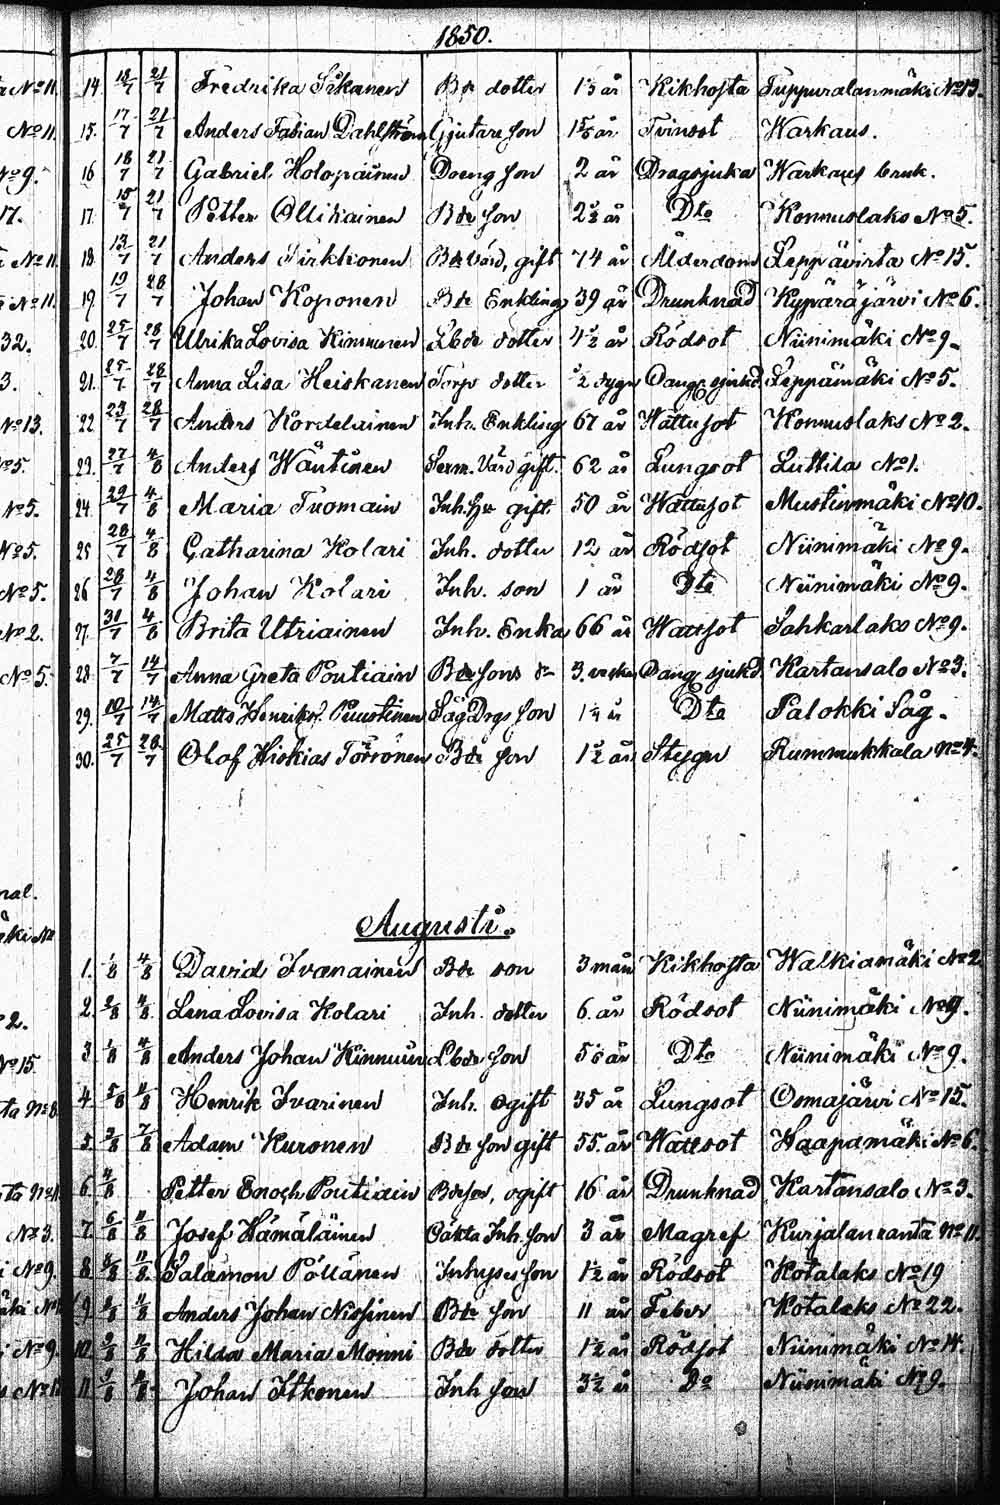 1850.
a No 11. 14. 18/7 21/7 Fredrika Sikanen Bde dotter 13 år Kikhosta Tuppuralanmäki No 13.
No 11. 15. 17/7 21/7 Anders Fabian Dahlström Gjutare son år Tvinsot Warkaus.
No 9. 16 18/7 21/7 Gabriel Holopainen Dreng son 2 år Dragsjuka Warkaus bruk.
17. 17. 15/7 21/7 Petter Ollikainen Bde son 2½ år Dto Konnuslaks No 5.
No 11. 18. 13/7 21/7 Anders Pirkkonen Bdevärd, gift 74 år Ålderdom Leppävirta No 15.
No 11. 19. 19/7 28/7 Johan Koponen Bde Enkling 39 år Drunknad Kypäräjärvi No 6.
32. 20. 25/7 28/7 Ulrika Lovisa Kinnunen Lbde dotter 4½ år Rödsot Niinimäki No 9.
3. 21. 25/7 28/7 Anna Lisa Heiskanen Torps dotter ½ dygn Leppämäki No 5.
No 13. 22 23/7 28/7 Anders Kordelainen Inh. Enkling 67 år Wattusot Konnuslaks No 2.
No 5. 23. 27/7 4/8 Anders Wäntinen värd gift. 62 år Lungsot Luttila No 1.
No 5. 24. 29/7 4/8 Maria Tuomain Inh. gift 50 år Wattusot Mustinmäki No 10.
No 5. 25 28/7 4/8 Catharina Kolari Inh. dotter 12 år Rödsot Niinimäki No 9.
No 5. 26 28/7 4/8 Johan Kolari Inh. son 1 år Dto Niinimäki No 9.
No 2. 27. 31/7 4/8 Brita Utriainen Inh. Enka 66 år Wattsot Sahkarlaks No 9.
No 5. 28 7/7 14/7 Anna Greta Poutiain Bdesons dr 3. veckor Kartansalo No 3.
29. 10/7 14/7 Matts Henriks. Puustinen Såg Drgs son 1¼ år Dto Palokki Såg.
30. 25/7 28/7 Olof Hiskias Törrönen Bde son 1½ år Stygn Rummukkala No 4.
nal.
Augusti.
mäki No 1. 1/8 4/8 David Ivanainen Bde son 3 mån Kikhosta Walkiamäki No 2
2. 2. 2/8 4/8 Lena Lovisa Kolari Inh. dotter 6. år Rödsot Niinimäki No 9.
No 15. 3. 1/8 4/8 Anders Johan Kinnunen Lbde son år Dto Niinimäki No 9.
ta No 8. 4. 5/8 11/8 Henrik Ivarinen Inh. ogift 35 år Lungsot Osmajärvi No 15.
5. 3/8 7/8 Adam Kuronen Bde son gift 55. år Wattsot Haapamäki No 6.
6. 4/8 Petter Enoch Poutiain Bdeson, ogift 16 år Drunknad Kartansalo No 3.
No 3. 7. 6/8 11/8 Josef Hämäläinen Oäkta Inh. son 3 år Magref Kurjalanranta No 11.
i No 9. 8. 8/8 11/8 Salamon Pöllänen Inhyses son 1½ år Rödsot Kotalaks No 19
9. 11/8 Anders Johan Nissinen Bde son 11 år Feber Kotalaks No 22.
i No 9. 10. 9/8 11/8 Hilda Maria Monni Bde dotter 1½ år Rödsot Niinimäki No 14.
11. 9/8 11/8 Johan Itkonen Inh son 3½ år Do Niinimäki No 9.